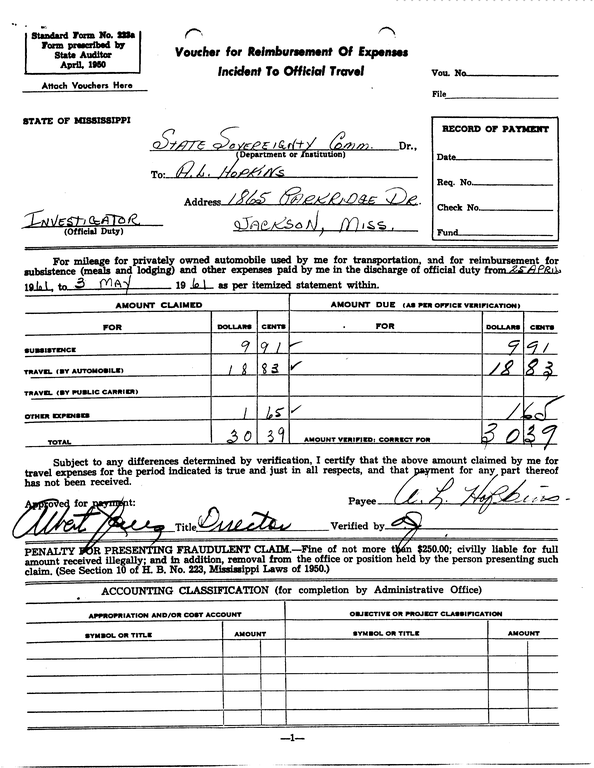 Standard Form No. 223a
Form prescribed by
State Auditor
April, 1950
Attach Vouchers Here
Voucher for Reimbursement Of Expenses
Incident To Official Travel
Vou. No.
File
STATE OF MISSISSIPPI
STATE SOVEREIGNTY COMM. Dr.,
(Department or Institution)
To: A.L. HOPKINS
Address 1865 PARKRIDGE DR.
JACKSON, MISS.
INVESTIGATOR
(Official Duty)
RECORD OF PAYMENT
Date
Req. No.
Check No.
Fund
For mileage for privately owned automobile used by me for transportation, and for reimbursement for
subsistence (meals and lodging) and other expenses paid by me in the discharge of official duty from 25 APRIL
1961, to 3 MAY 1961 as per itemized statement within.
AMOUNT CLAIMED AMOUNT DUE (AS PER OFFICE VERIFICATION)
FOR DOLLARS CENTS FOR DOLLARS CENTS
SUBSISTENCE 9 91 ✓ 9 91
TRAVEL (BY AUTOMOBILE) 18 83 ✓ 18 83
TRAVEL (BY PUBLIC CARRIER)
OTHER EXPENSES 1 65 ✓ 1 65
TOTAL 30 39 AMOUNT VERIFIED: CORRECT FOR 30 39
Subject to any differences determined by verification, I certify that the above amount claimed by me for
travel expenses for the period indicated is true and just in all respects, and that payment for any part thereof
has not been received.
Approved for payment: Payee A. L. Hopkins
Albert Jones Title Director Verified by
PENALTY FOR PRESENTING FRAUDULENT CLAIM.—Fine of not more than $250.00; civilly liable for full
amount received illegally; and in addition, removal from the office or position held by the person presenting such
claim. (See Section 10 of H. B. No. 223, Mississippi Laws of 1950.)
ACCOUNTING CLASSIFICATION (for completion by Administrative Office)
APPROPRIATION AND/OR COST ACCOUNT OBJECTIVE OR PROJECT CLASSIFICATION
SYMBOL OR TITLE AMOUNT SYMBOL OR TITLE AMOUNT
—1—